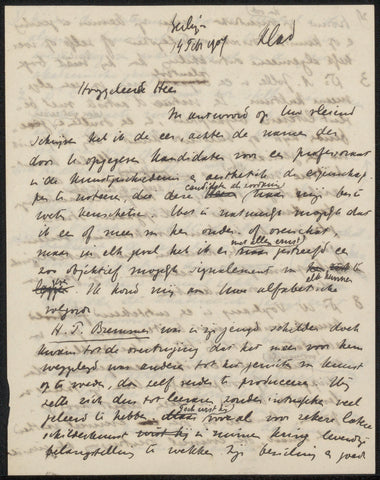 14 Febr 1907 Klad
Hooggeleerde Heer
In antwoord op Uw vleiend
schrijven heb ik de eer, achter de namen der
door U opgegeven kandidaten voor een professoraat
in de kunstgeschiedenis en aesthetiek de eigenschap-
pen te noteeren, die deze candidaten als zoodanig mij best
weten. Het is natuurlijk mogelijk dat
ik een of meer in hen onder- of overschat,
maar in elk geval heb ik er met allen ernst gestreefd een
zoo objectief mogelijk signalement in te
Ik houd mij aan Uwe alfabetische
volgorde
H. P. Bremmer was in zijn jeugd schilder doch
kwam tot de overtuiging dat het meer voor hem
weggelegd was anderen tot het genieten van kunst
op te voeden, dan zelf verder te produceeren. Hij
zette zich dus tot leeraren, zonder veel
geleerd te hebben, doch wist hij vooral voor zekere
schilderkunst in ruimen kring levendige
belangstelling te wekken zijn en goede